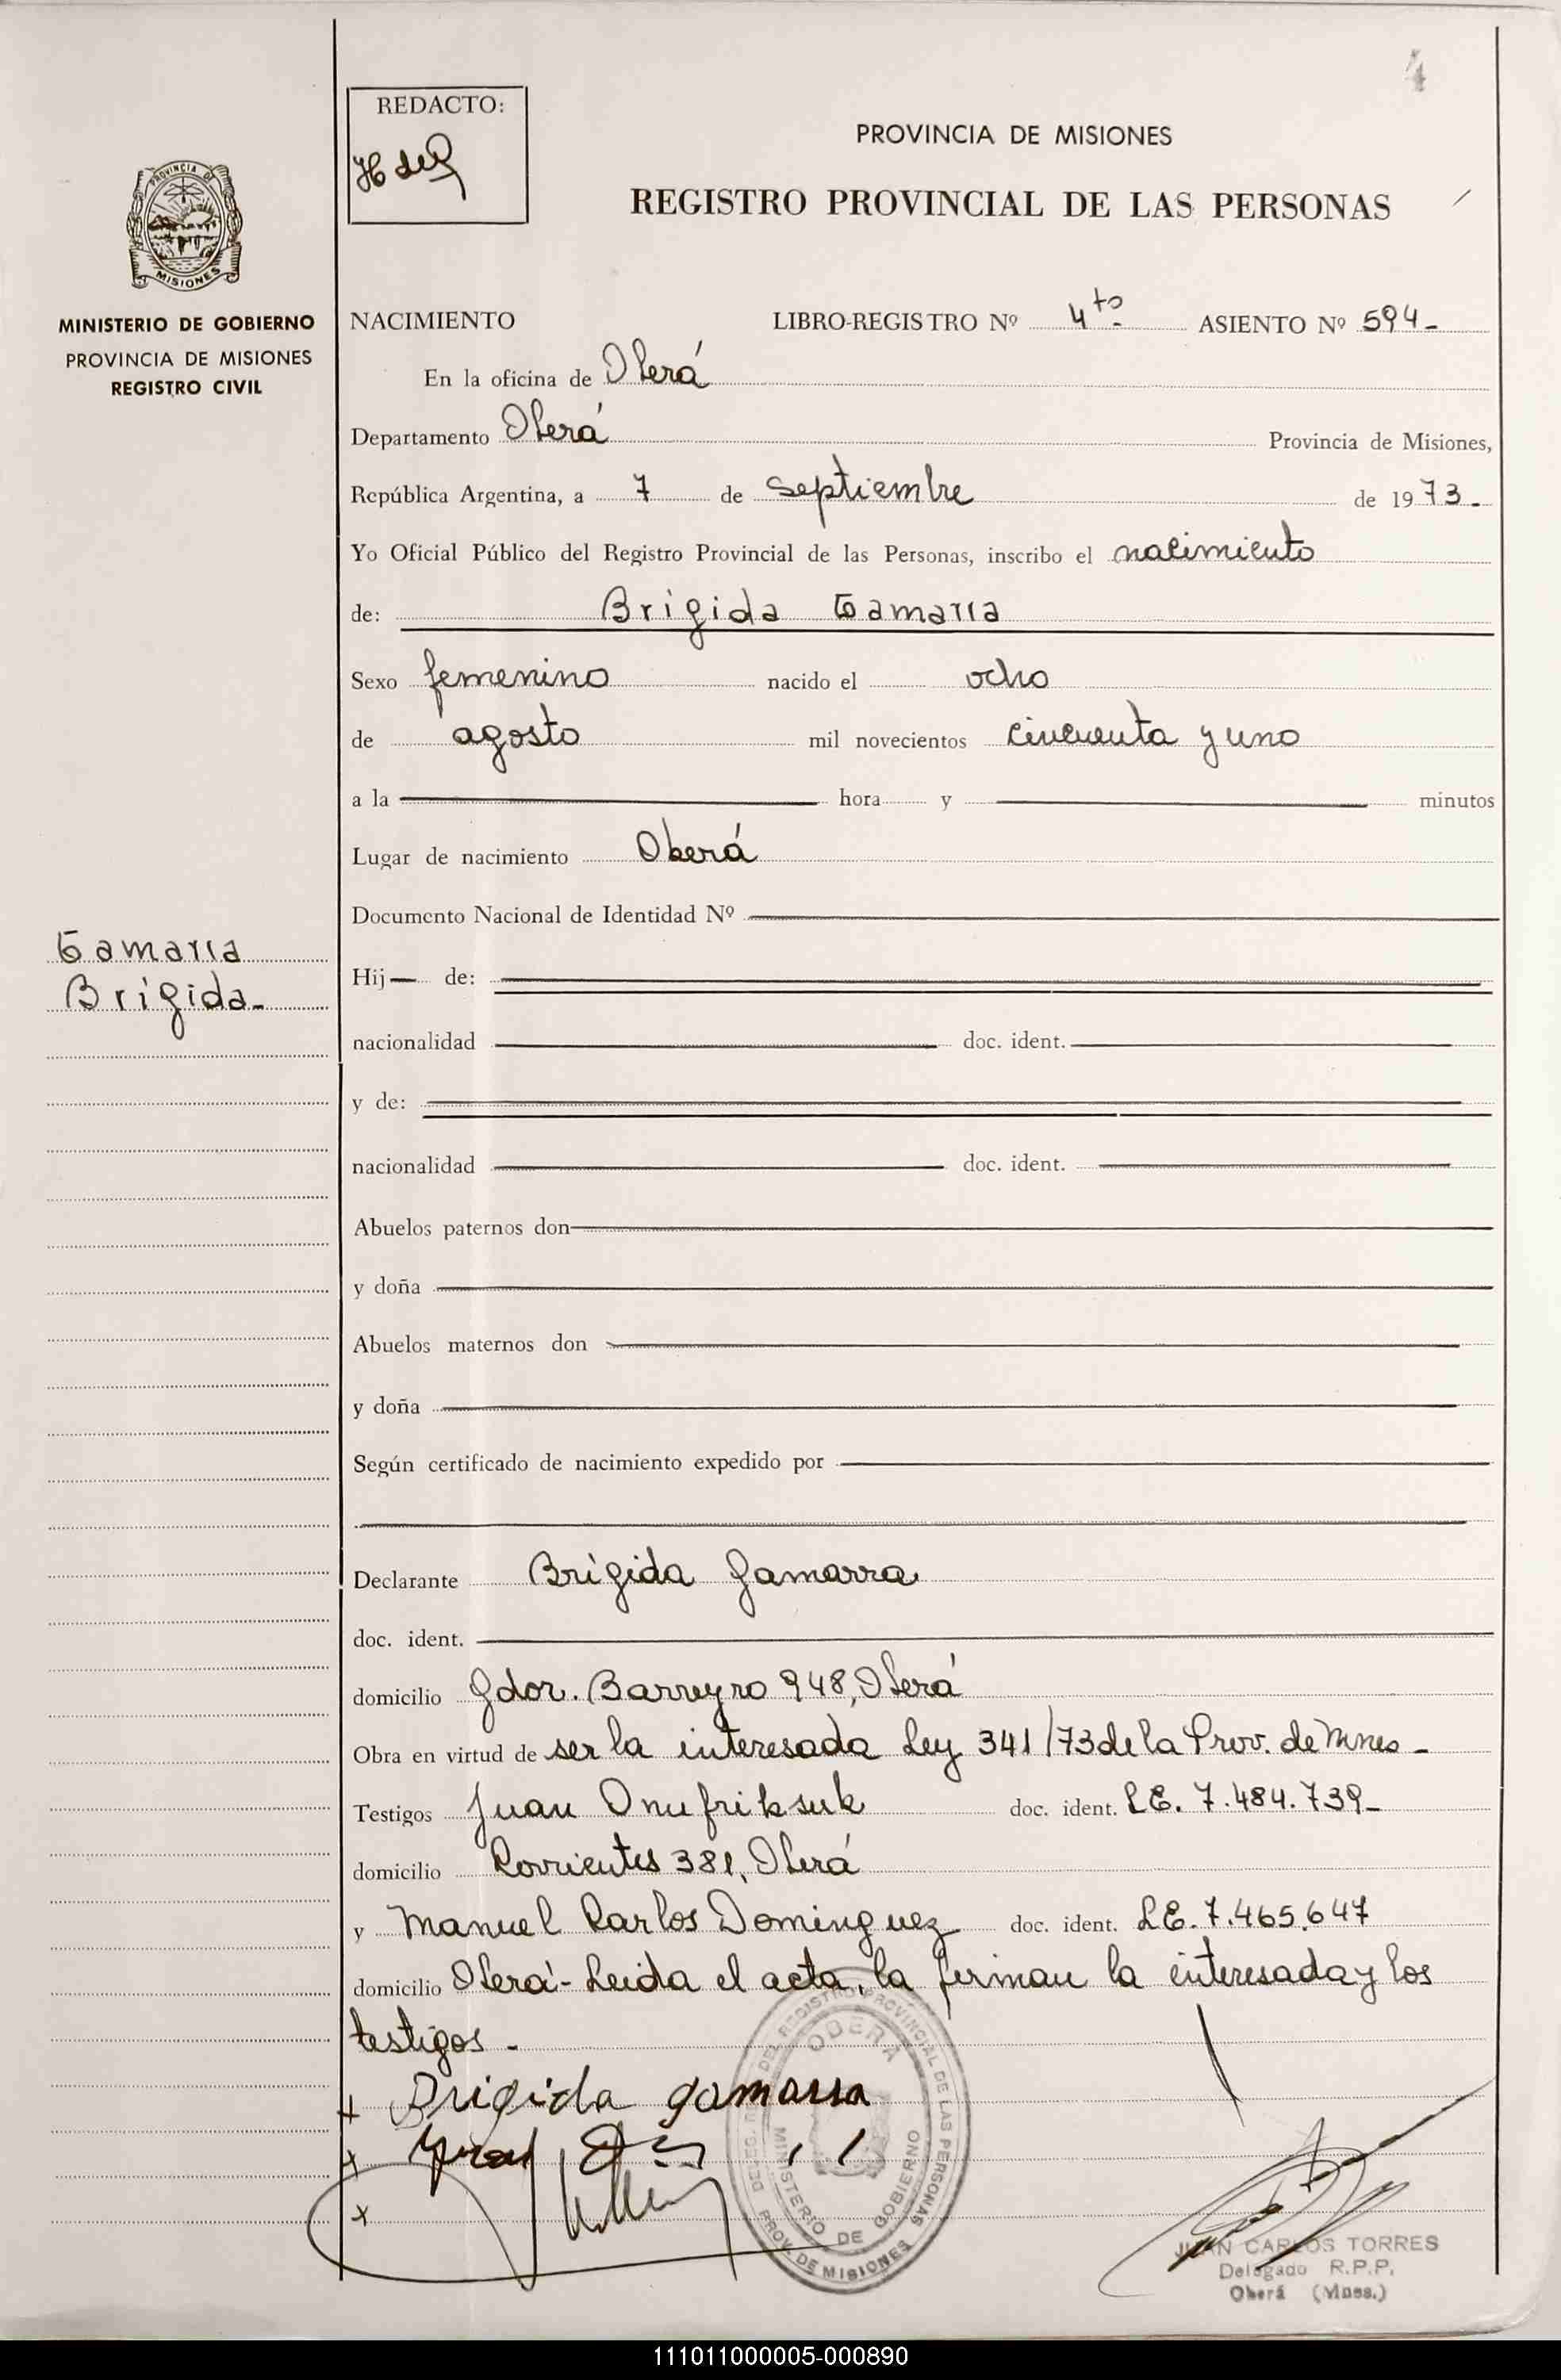 4
REDACTO:
PROVINCIA DE MISIONES
REGISTRO PROVINCIAL DE LAS PERSONAS
PROVINCIA DE
MISIONES
MINISTERIO DE GOBIERNO
PROVINCIA DE MISIONES
REGISTRO CIVIL
NACIMIENTO LIBRO-REGISTRO Nº 4to ASIENTO Nº 594-
En la oficina de Oberá
Departamento Oberá Provincia de Misiones,
República Argentina, a 7 de septiembre de 1973-
Yo Oficial Público del Registro Provincial de las Personas, inscribo el nacimiento
de: Brígida Gamarra
Sexo femenino nacido el ocho
de agosto mil novecientos cincuenta y uno
a la hora y minutos
Lugar de nacimiento Oberá
Documento Nacional de Identidad Nº
Gamarra
Brígida-
Hij de:
nacionalidad doc. ident.
y de:
nacionalidad doc. ident.
Abuelos paternos don
y doña
Abuelos maternos don
y doña
Según certificado de nacimiento expedido por
Declarante Brígida Gamarra
doc. ident.
domicilio Gdor. Barreyro 948, Oberá
Obra en virtud de ser la interesada Ley 341/73 de la Prov. de Mnes-
Testigos Juan Onufriksuk doc. ident. L.E. 7.484.739-
domicilio Corrientes 381, Oberá
y Manuel Carlos Dominguez doc. ident. L.E. 7.465.647
domicilio Oberá- Leida el acta, la firman la interesada y los
testigos-
Brigida gamarra
DEL REGISTRO PROVINCIAL DE LAS PERSONAS
OBERA
MINISTERIO DE GOBIERNO
PROV. DE MISIONES
JUAN CARLOS TORRES
Delegado R.P.P.
Oberá (Mnes.)
111011000005-000890